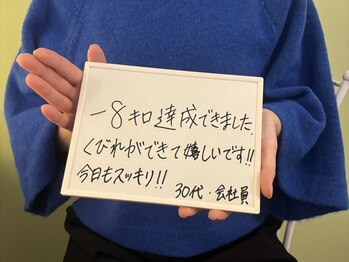 -8キロ達成できました.
くびれができて嬉しいです!!
今日もスッキリ!!
30代・会社員